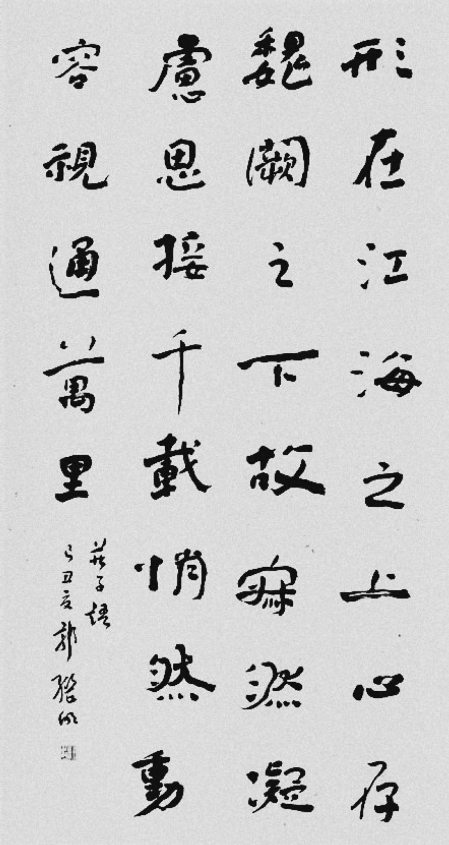 形在江海之上心存
魏闕之下故寂然凝
慮思接千載悄然動
容視通萬里
莊子語
己丑夏郭